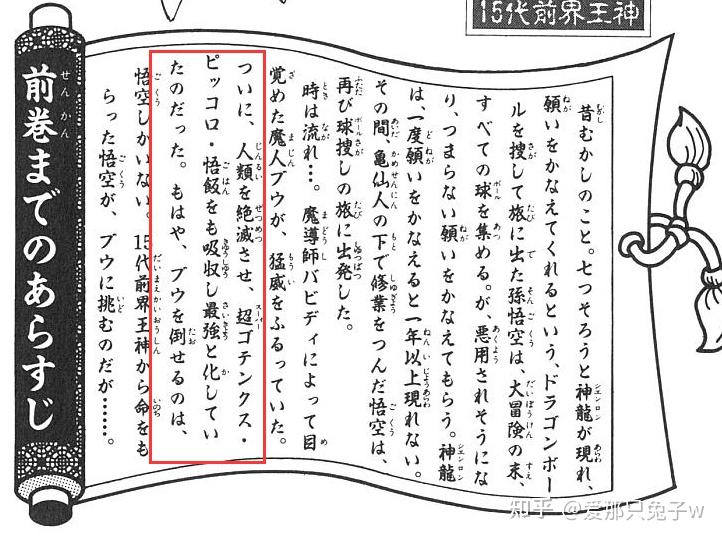 15代前界王神
昔むかしのこと。七つそろうと神龍が現れ、
願いをかなえてくれるという、ドラゴンボー
ルを捜して旅に出た孫悟空は、大冒険の末、
すべての球を集める。が、悪用されそうにな
り、つまらない願いをかなえてもらう。神龍
は、一度願いをかなえると一年以上現れない。
その間、亀仙人の下で修業をつんだ悟空は、
再び球捜しの旅に出発した。
時は流れ…。魔導師バビディによって目
覚めた魔人ブウが、猛威をふるっていた。
ついに、人類を絶滅させ、超ゴテンクス・
ピッコロ・悟飯をも吸収し最強と化してい
たのだった。もはや、ブウを倒せるのは、
悟空しかいない。15代前界王神から命をも
らった悟空が、ブウに挑むのだが……。
前巻までのあらすじ
知乎 @爱那只兔子w